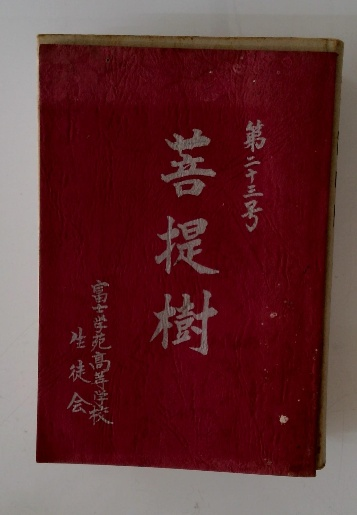 第二十三号
菩提樹
富士学苑高等学校
生徒会